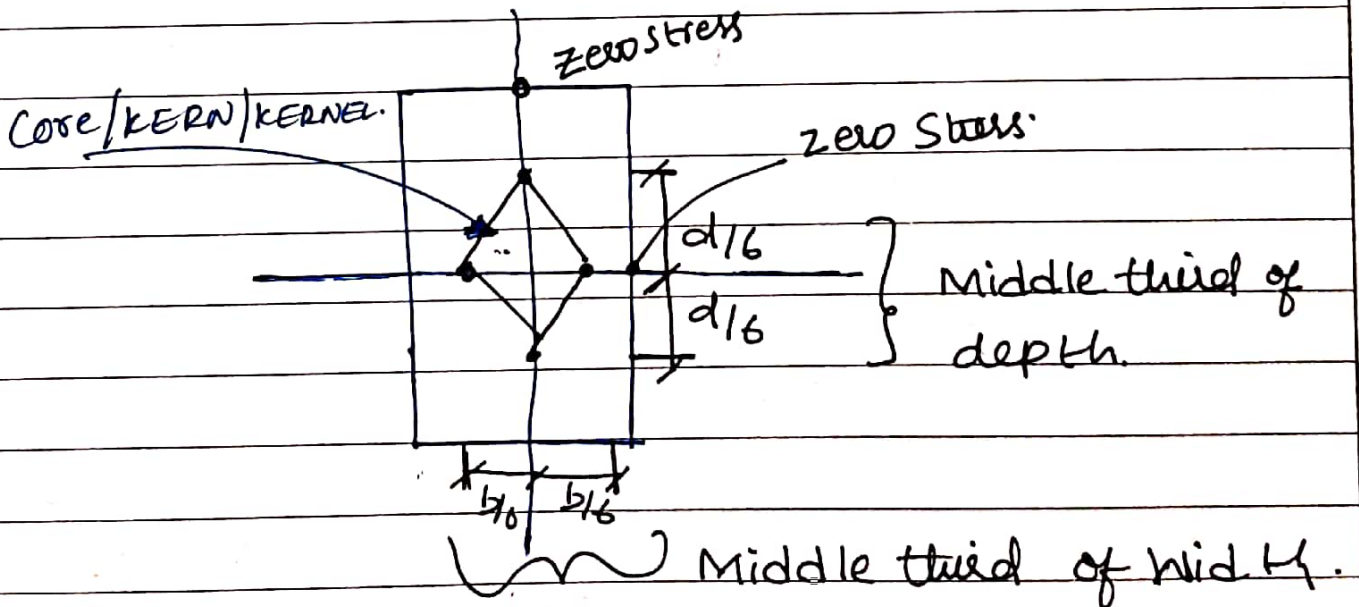 Zero stress
Core/KERN/KERNEL.
Zero Stress.
d/6
d/6
Middle third of
depth.
b/6 b/6
Middle third of Width.